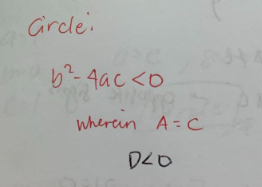 Circle:
b²-4ac<0
wherein A=C
D<0